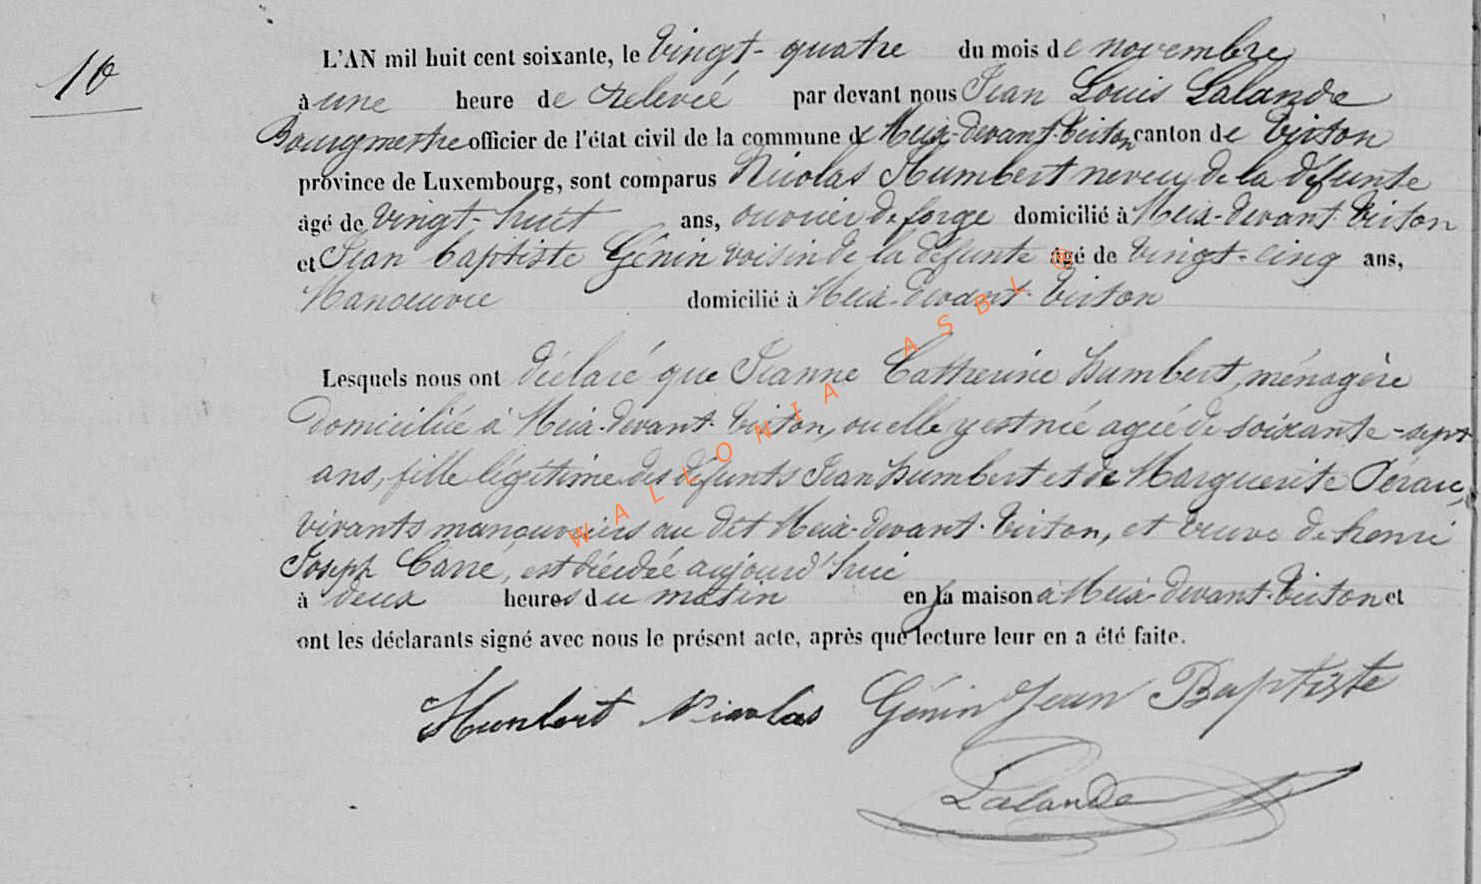 10
L'AN mil huit cent soixante, le vingt-quatre du mois de novembre
à une heure de relevée par devant nous Jean Louis Lalande
Bourgmestre officier de l'état civil de la commune de Meix-devant-Virton canton de Virton
province de Luxembourg, sont comparus Nicolas Humbert neveu de la défunte
âgé de vingt-huit ans, ouvrier de forge domicilié à Meix-devant-Virton
et Jean Baptiste Génin voisin de la défunte âgé de vingt-cinq ans,
Manoeuvre domicilié à Meix-devant-Virton
Lesquels nous ont déclaré que Jeanne Catherine humbert, ménagère
domiciliée à Meix-devant-Virton, ou elle y est née agée de soixante-sept
ans, fille légitime des défunts Jean humbert et de Marguerite
vivants manouvriers au dit Meix-devant-Virton, et veuve de henri
Joseph est décédée aujourd'hui
à deux heures du matin en sa maison à Meix-devant-Virton et
ont les déclarants signé avec nous le présent acte, après que lecture leur en a été faite.
Humbert Nicolas Génin Jean Baptiste
Lalande
WALLONIA ASBL ©